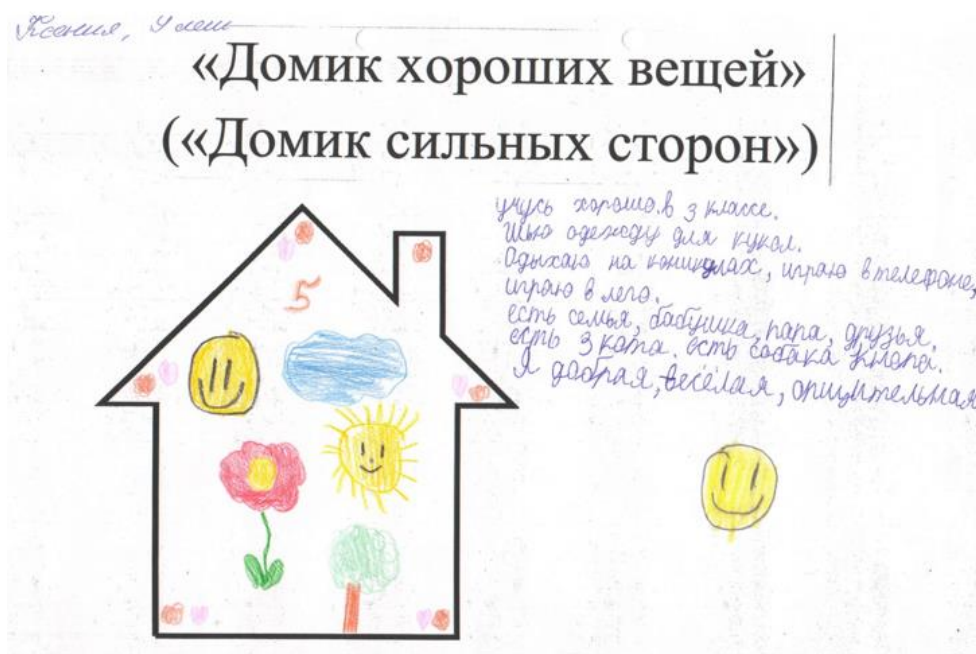 Ксения, 9 лет
«Домик хороших вещей»
(«Домик сильных сторон»)
учусь хорошо в 3 классе.
Шью одежду для кукол.
Одыхаю на коникулах, играю в телефоне,
играю в лего.
есть семья, бабушка, папа, друзья.
есть 3 кота. есть собака Кнопа.
Я добрая, весёлая, опщительная
5